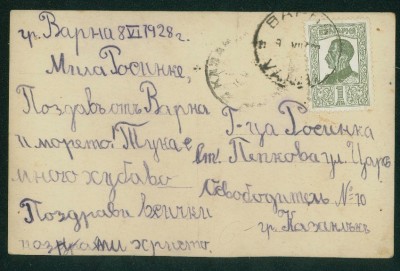 гр. Варна 8 VI 1928 г.
Мила Росинке,
Поздравъ отъ Варна
и морето! Тука е
много хубаво
Поздрави всички
познати Христо.
Г-ца Росинка
Пенкова ул. Царъ
Освободитель № 10
гр. Казанлъкъ
БЪЛГАРИЯ
1
ВАРНА
КАЗАН